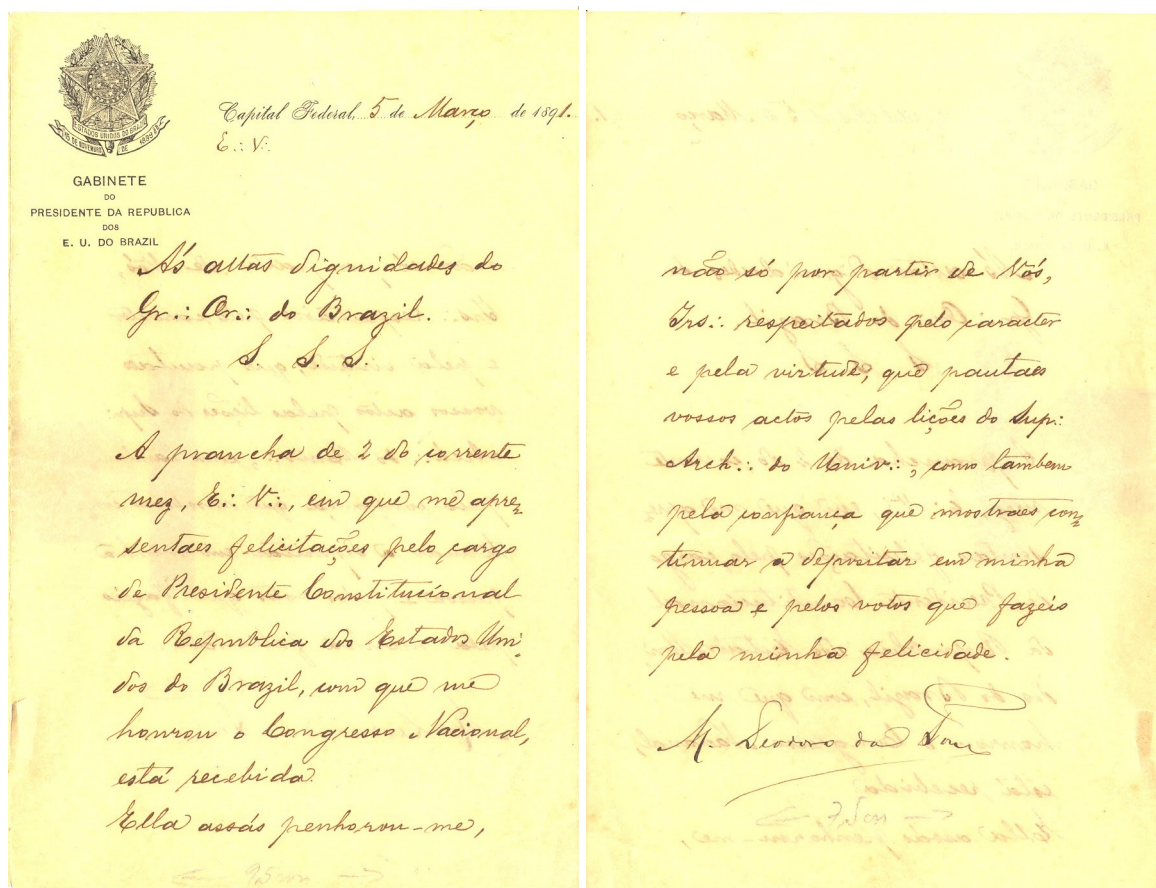 ESTADOS UNIDOS DO BRAZIL
15 DE NOVEMBRO DE 1889
GABINETE
DO
PRESIDENTE DA REPUBLICA
DOS
E. U. DO BRAZIL
Capital Federal, 5 de Março de 1891.
E∴ V∴
Ás altas dignidades do
Gr∴ Or∴ do Brazil.
S. S. S.
A prancha de 2 do corrente
mez, E∴ V∴, em que me apre=
sentaes felicitações pelo cargo
de Presidente Constitucional
da Republica dos Estados Uni-
dos do Brazil, com que me
honrou o Congresso Nacional,
está recebida.
Ella assás penhorou-me,
não só por partir de Vós,
Irs∴ respeitados pelo caracter
e pela virtude, que pautaes
vossos actos pelas lições do Sup∴
Arch∴ do Univ∴, como tambem
pela confiança que mostraes con=
tinuar a depositar em minha
pessoa e pelos votos que fazeis
pela minha felicidade.
M. Deodoro da Fon